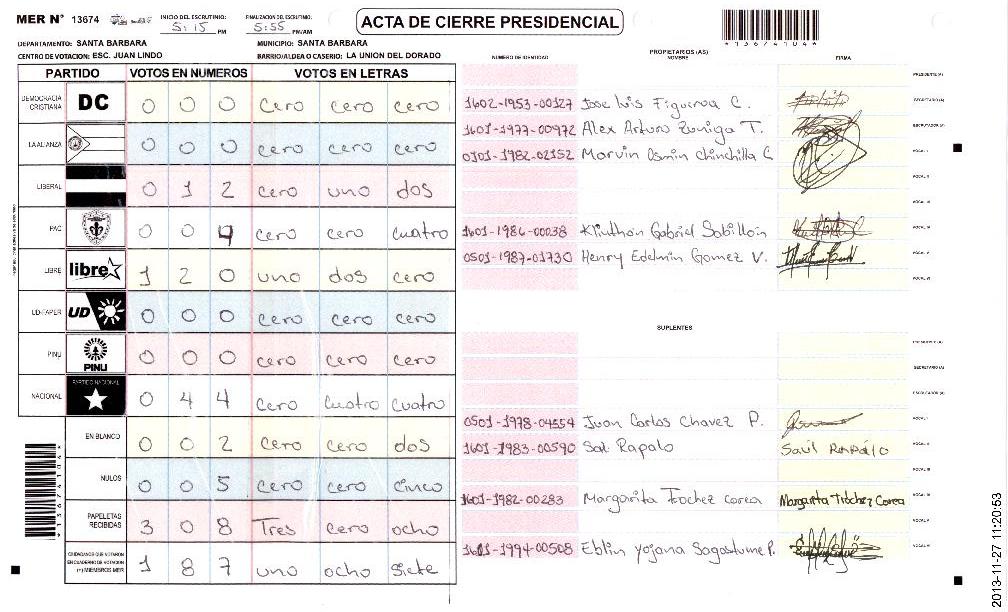 MER N° 13674
INICIO DEL ESCRUTINIO: 5:15 PM
FINALIZACION DEL ESCRUTINIO: 5:55 PM/AM
ACTA DE CIERRE PRESIDENCIAL
*1367410 4*
DEPARTAMENTO: SANTA BARBARA
MUNICIPIO: SANTA BARBARA
CENTRO DE VOTACION: ESC. JUAN LINDO
BARRIO/ALDEA O CASERIO: LA UNION DEL DORADO
PARTIDO VOTOS EN NUMEROS VOTOS EN LETRAS
DEMOCRACIA CRISTIANA DC 0 0 0 cero cero cero
LA ALIANZA 0 0 0 cero cero cero
LIBERAL 0 1 2 cero uno dos
PAC 0 0 4 cero cero cuatro
LIBRE libre 1 2 0 uno dos cero
UD-FAPER UD 0 0 0 cero cero cero
PINU PINU 0 0 0 cero cero cero
NACIONAL PARTIDO NACIONAL 0 4 4 cero cuatro cuatro
EN BLANCO 0 0 2 cero cero dos
NULOS 0 0 5 cero cero cinco
PAPELETAS RECIBIDAS 3 0 8 Tres cero ocho
CIUDADANOS QUE VOTARON EN CUADERNO DE VOTACION (+) MIEMBROS MER 1 8 7 uno ocho siete
NUMERO DE IDENTIDAD
PROPIETARIOS (AS)
NOMBRE
FIRMA
PRESIDENTE (A)
1602-1953-00127 Jose luis Figueroa C. SECRETARIO (A)
1601-1977-00972 Alex Arturo Zuniga T. ESCRUTADOR (A)
0101-1982-02152 Marvin Osmin Chinchilla C VOCAL I
VOCAL II
VOCAL III
1601-1986-00038 Klinthon Gabriel Sabillon VOCAL IV
0501-1987-01730 Henry Edelmin Gomez V. VOCAL V
VOCAL VI
SUPLENTES
PRESIDENTE (A)
SECRETARIO (A)
ESCRUTADOR (A)
0501-1978-04554 Juan Carlos Chavez P. VOCAL I
1601-1983-00590 Sal Rapalo Saúl Rapálo VOCAL II
VOCAL III
1601-1982-00283 Margarita Trochez corea Margarita Tróchez Corea VOCAL IV
VOCAL V
1601-1994-00508 Eblin yojana Sagastume P. VOCAL VI
2013-11-27 11:20:53